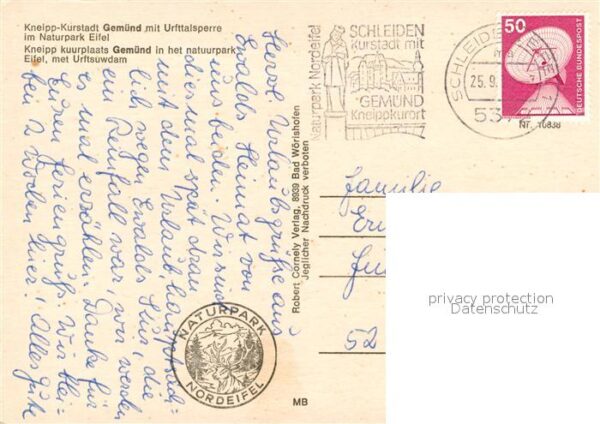 Kneipp-Kurstadt Gemünd mit Urfttalsperre
im Naturpark Eifel
Kneipp kuurplaats Gemünd in het natuurpark
Eifel, met Urftsuwdam
Herzl. Urlaubsgrüße aus
Ewalds Heimat von
uns beiden. Wir sind
diesmal spät dran
mit dem Urlaub, hauptsäch-
lich wegen Ewalds Kur, die
ein Reinfall war, wir werden
es mal erzählen. Danke für
Euren Feriengruß. Wir blei-
ben 2 Wochen hier. Alles Gute
NATURPARK
NORDEIFEL
Robert Cornely Verlag, 8939 Bad Wörishofen
Jeglicher Nachdruck verboten
MB
Naturpark Nordeifel
SCHLEIDEN
Kurstadt mit
GEMÜND
Kneippkurort
SCHLEIDE
25.9.
537
50
DEUTSCHE BUNDESPOST
Nr. 10838
Familie
52
privacy protection
Datenschutz